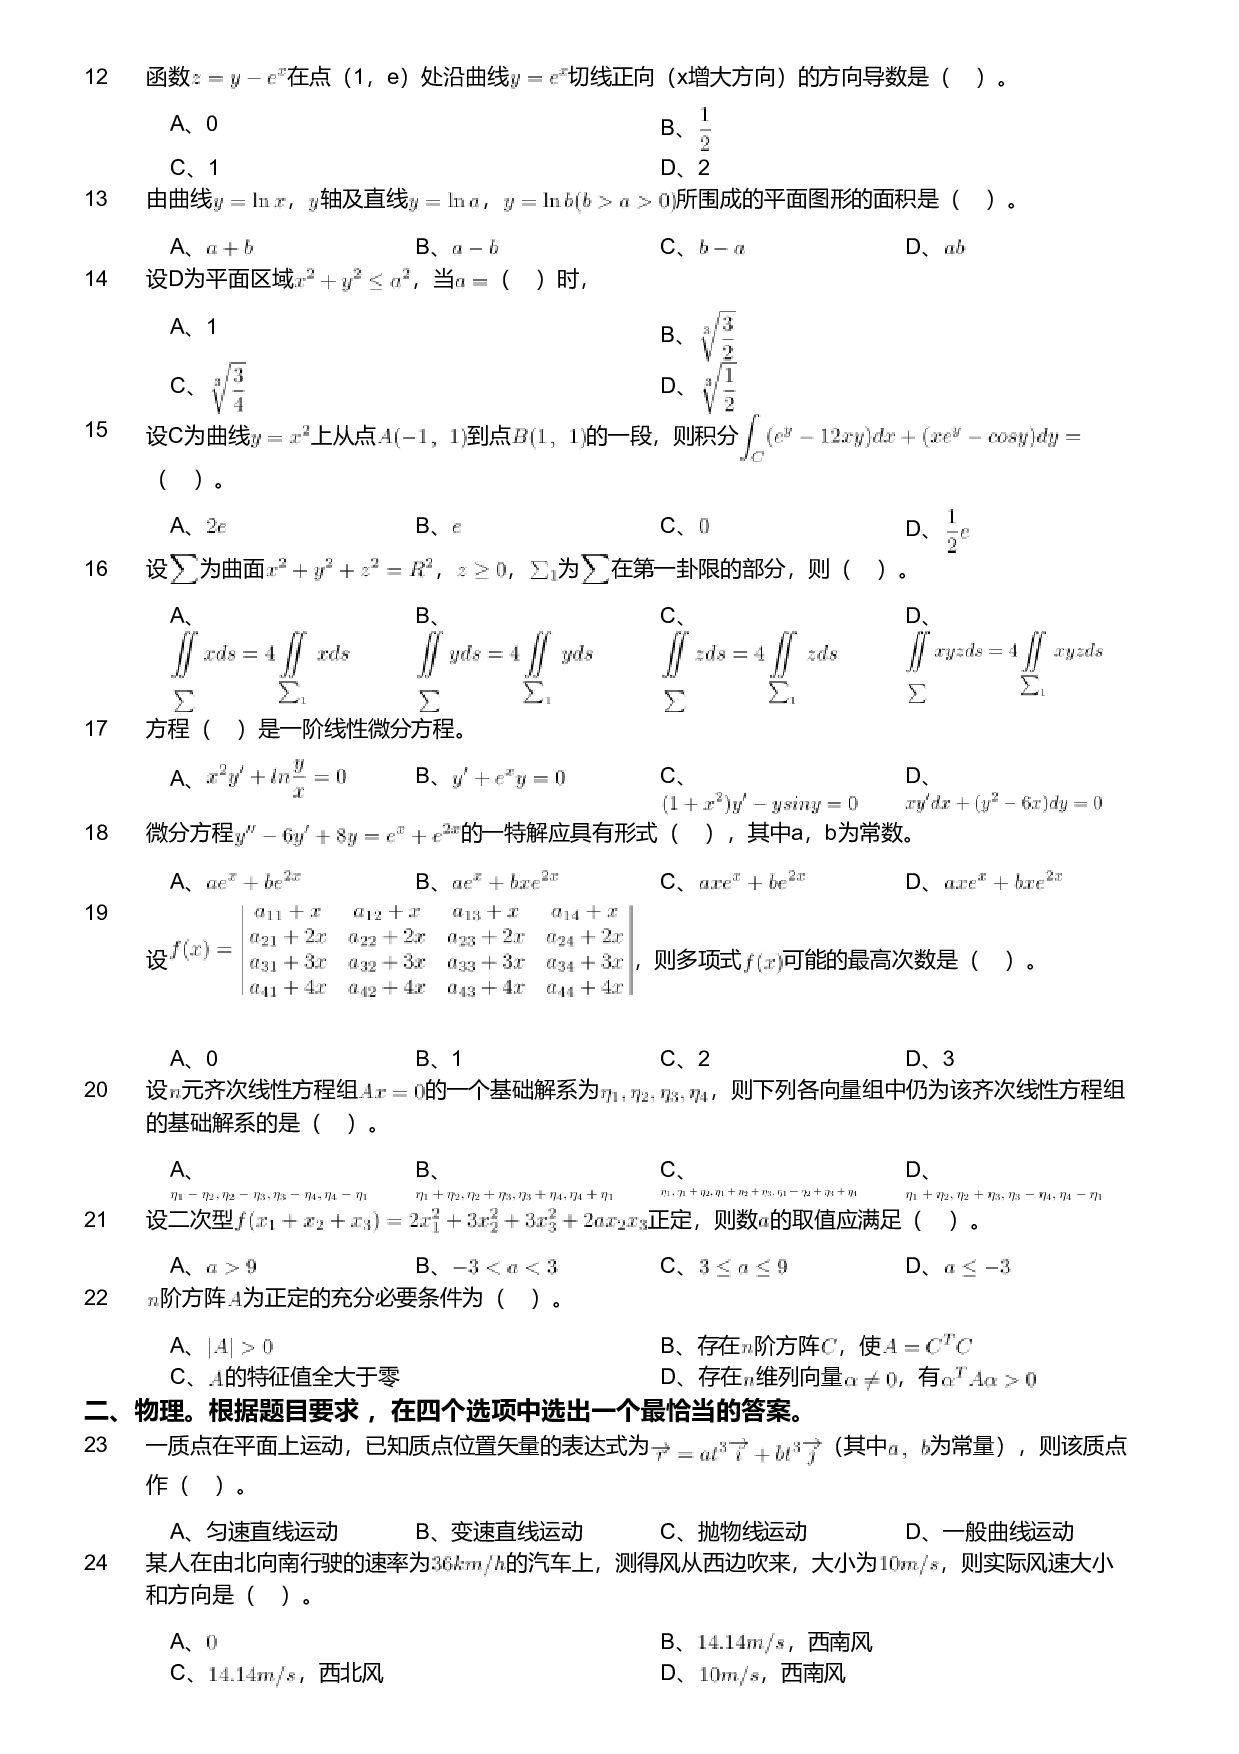 12 函数z = y − e^x在点（1，e）处沿曲线y = e^x切线正向（x增大方向）的方向导数是（ ）。
A、0 B、1/2
C、1 D、2
13 由曲线y = ln x，y轴及直线y = ln a，y = ln b(b > a > 0)所围成的平面图形的面积是（ ）。
A、a + b B、a − b C、b − a D、ab
14 设D为平面区域x² + y² ≤ a²，当a =（ ）时，
A、1 B、∛(3/2)
C、∛(3/4) D、∛(1/2)
15 设C为曲线y = x²上从点A(−1，1)到点B(1，1)的一段，则积分∫_C (e^y − 12xy)dx + (xe^y − cosy)dy =
（ ）。
A、2e B、e C、0 D、1/2 e
16 设∑为曲面x² + y² + z² = R²，z ≥ 0，∑₁为∑在第一卦限的部分，则（ ）。
A、 B、 C、 D、
∬_∑ xds = 4∬_∑₁ xds ∬_∑ yds = 4∬_∑₁ yds ∬_∑ zds = 4∬_∑₁ zds ∬_∑ xyzds = 4∬_∑₁ xyzds
17 方程（ ）是一阶线性微分方程。
A、x²y′ + ln y/x = 0 B、y′ + e^x y = 0 C、 D、
(1 + x²)y′ − ysiny = 0 xy′dx + (y² − 6x)dy = 0
18 微分方程y″ − 6y′ + 8y = e^x + e^{2x}的一特解应具有形式（ ），其中a，b为常数。
A、ae^x + be^{2x} B、ae^x + bxe^{2x} C、axe^x + be^{2x} D、axe^x + bxe^{2x}
19 设f(x) = | a₁₁ + x a₁₂ + x a₁₃ + x a₁₄ + x
a₂₁ + 2x a₂₂ + 2x a₂₃ + 2x a₂₄ + 2x
a₃₁ + 3x a₃₂ + 3x a₃₃ + 3x a₃₄ + 3x
a₄₁ + 4x a₄₂ + 4x a₄₃ + 4x a₄₄ + 4x |，则多项式f(x)可能的最高次数是（ ）。
A、0 B、1 C、2 D、3
20 设n元齐次线性方程组Ax = 0的一个基础解系为η₁, η₂, η₃, η₄，则下列各向量组中仍为该齐次线性方程组
的基础解系的是（ ）。
A、 B、 C、 D、
η₁ − η₂, η₂ − η₃, η₃ − η₄, η₄ − η₁ η₁ + η₂, η₂ + η₃, η₃ + η₄, η₄ + η₁ η₁ + η₂, η₂ + η₃, η₃ − η₄, η₄ − η₁
21 设二次型f(x₁ + x₂ + x₃) = 2x₁² + 3x₂² + 3x₃² + 2ax₂x₃正定，则数a的取值应满足（ ）。
A、a > 9 B、−3 < a < 3 C、3 ≤ a ≤ 9 D、a ≤ −3
22 n阶方阵A为正定的充分必要条件为（ ）。
A、|A| > 0 B、存在n阶方阵C，使A = C^T C
C、A的特征值全大于零 D、存在n维列向量α ≠ 0，有α^T Aα > 0
二、物理。根据题目要求 ，在四个选项中选出一个最恰当的答案。
23 一质点在平面上运动，已知质点位置矢量的表达式为r⃗ = at³i⃗ + bt³j⃗（其中a，b为常量），则该质点
作（ ）。
A、匀速直线运动 B、变速直线运动 C、抛物线运动 D、一般曲线运动
24 某人在由北向南行驶的速率为36km/h的汽车上，测得风从西边吹来，大小为10m/s，则实际风速大小
和方向是（ ）。
A、0 B、14.14m/s，西南风
C、14.14m/s，西北风 D、10m/s，西南风